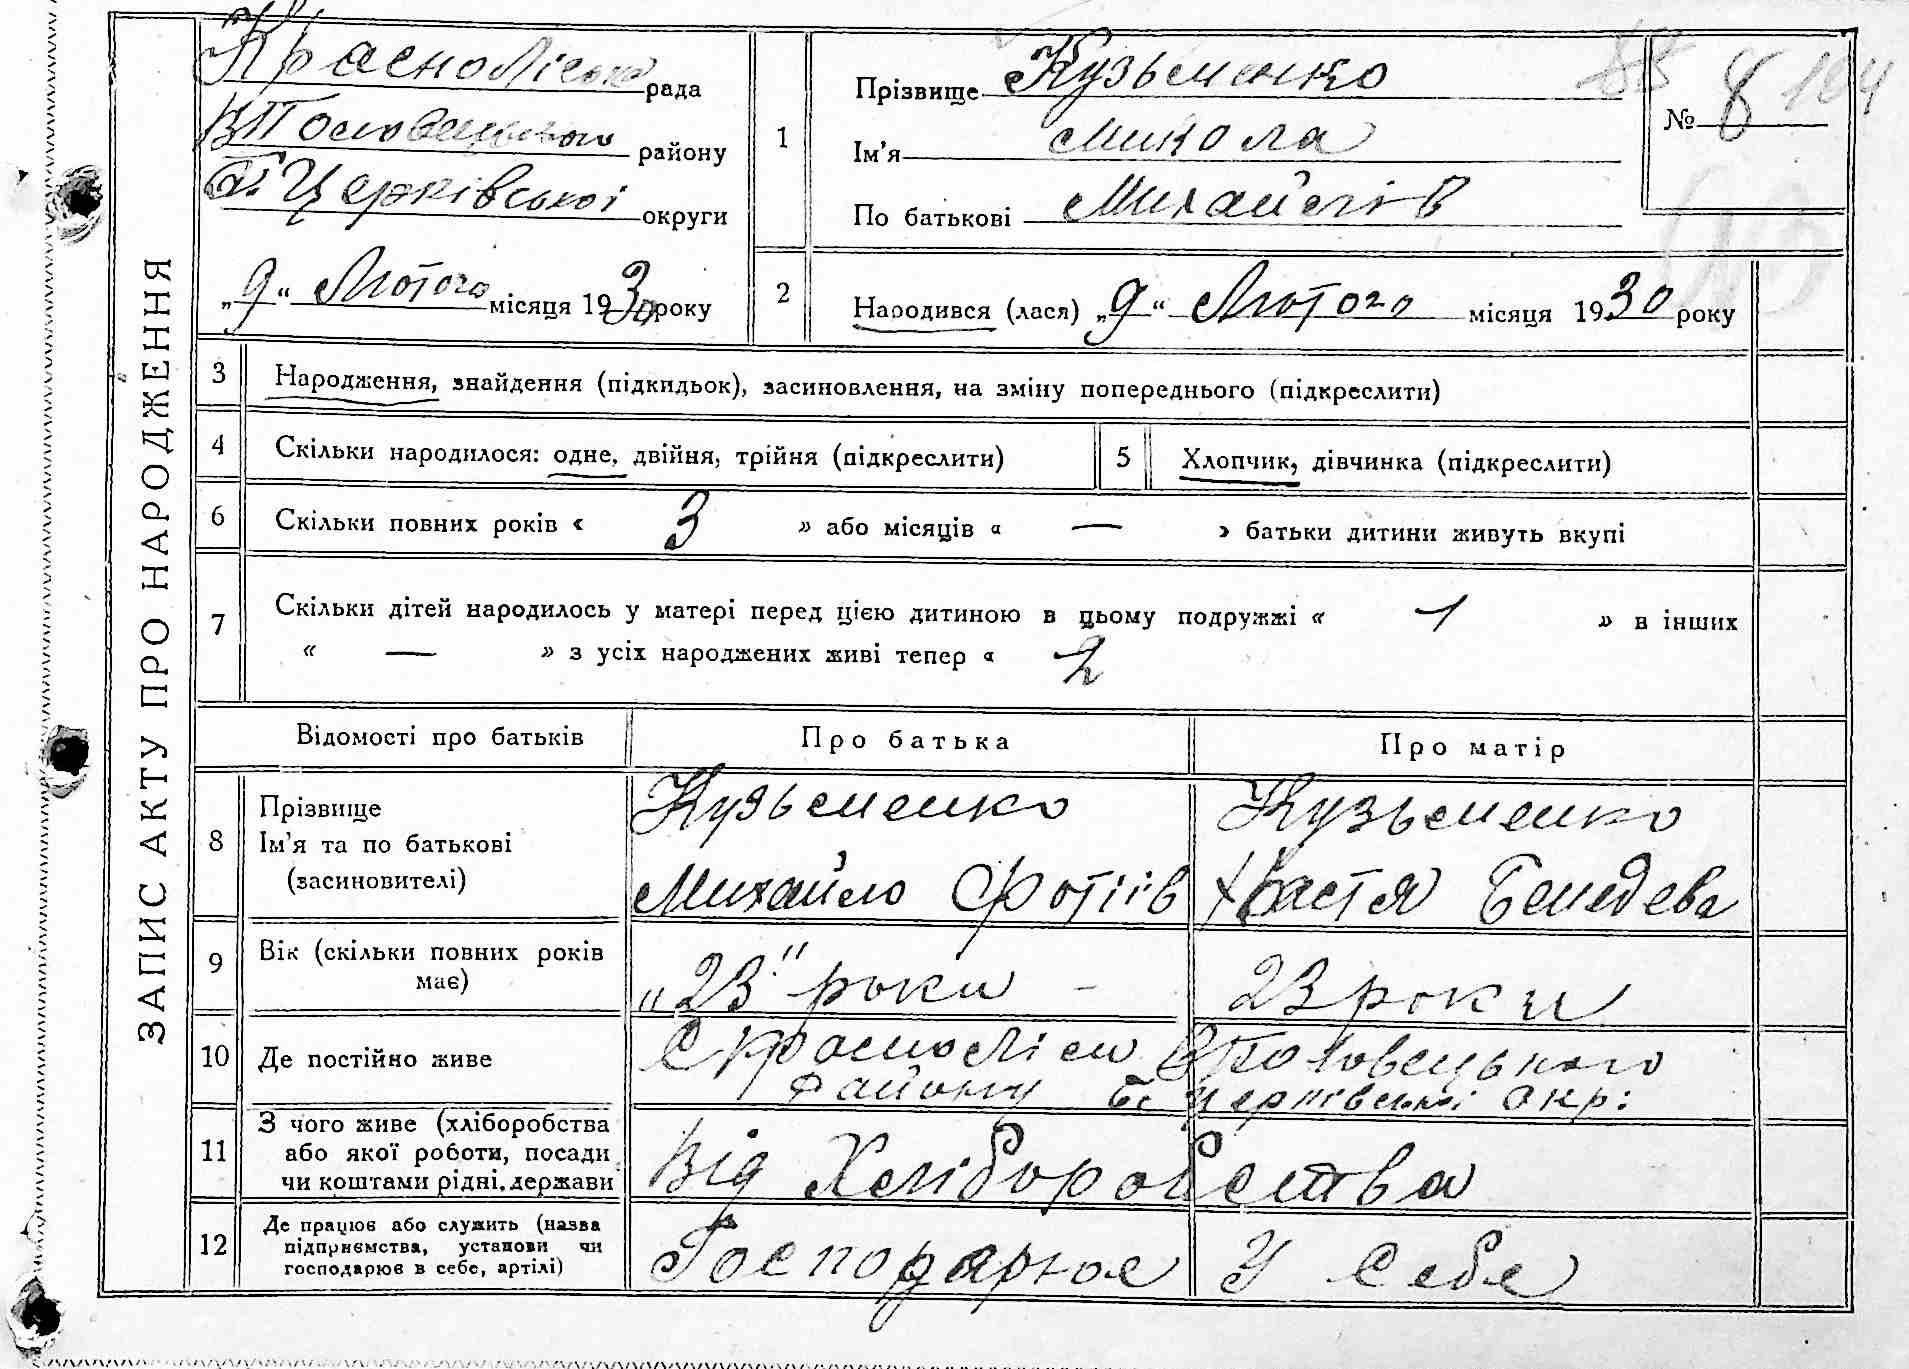 ЗАПИС АКТУ ПРО НАРОДЖЕННЯ
Красноліська рада
В Половецького району
Б. Церківської округи
„9“ Лютого місяця 1930 року
1
Прізвище Кузьменко
Ім'я Микола
По батькові Михайлів
№ 8
104
2
Народився (лася) „9“ Лютого місяця 1930 року
3 Народження, знайдення (підкидьок), засиновлення, на зміну попереднього (підкреслити)
4 Скільки народилося: одне, двійня, трійня (підкреслити)
5 Хлопчик, дівчинка (підкреслити)
6 Скільки повних років « 3 » або місяців « — » батьки дитини живуть вкупі
7 Скільки дітей народилось у матері перед цією дитиною в цьому подружжі « 1 » в інших
« — » з усіх народжених живі тепер « 2
Відомості про батьків
Про батька
Про матір
8
Прізвище
Ім'я та по батькові
(засиновителі)
Кузьменко
Михайло Фотіїв
Кузьменко
Настя
9
Вік (скільки повних років
має)
„23" роки —
23 роки
10 Де постійно живе
С Красноліси В Половецького
району Б. Церківської Окр:
11
З чого живе (хліборобства
або якої роботи, посади
чи коштами рідні, держави
Від Хліборобства
12
Де працює або служить (назва
підприємства, установи чи
господарює в себе, артілі)
Господарює У Себе